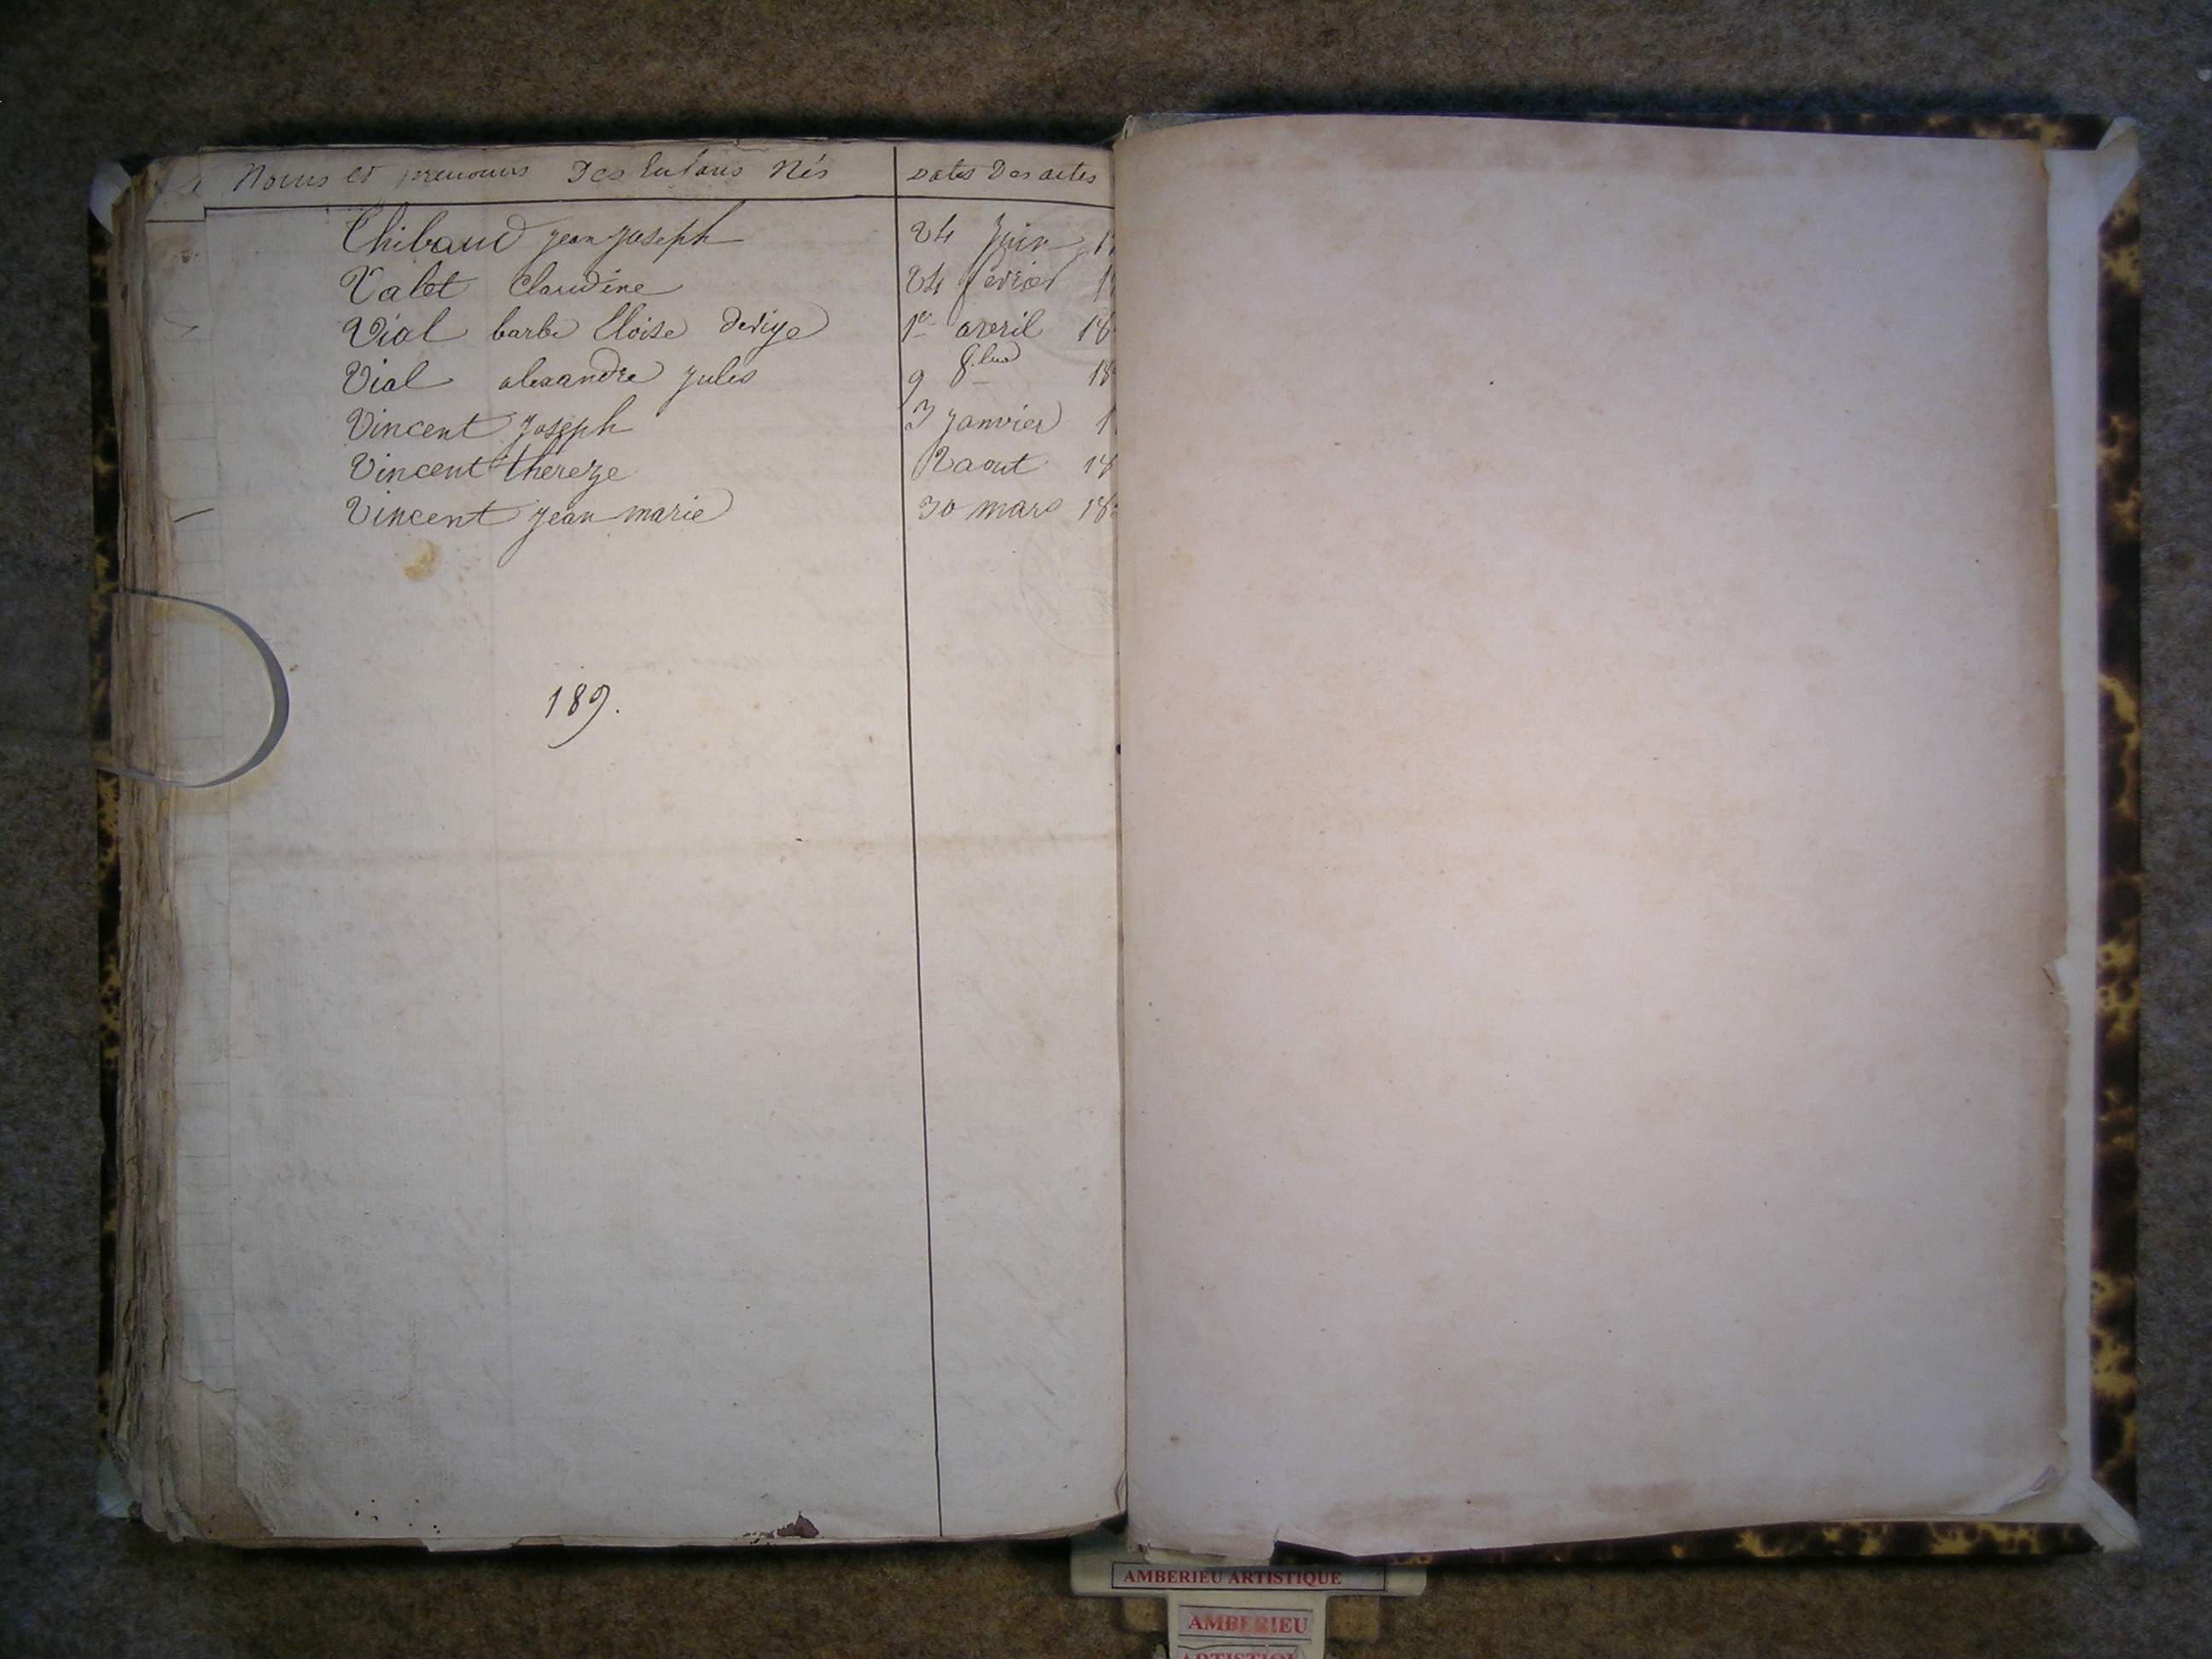 Noms et prenoms Des Enfans Nés Dates Des actes
Thibaud jean joseph 24 Juin 1
Valet Claudine 24 fevrier 1
Vial barbe Eloise 1er avril 18
Vial alexandre jules 9 8bre 18
Vincent Joseph 3 janvier 1
Vincent thereze 2 aout 18
Vincent jean marie 30 mars 18
189.
AMBERIEU ARTISTIQUE
AMBERIEU
ARTISTIQUE